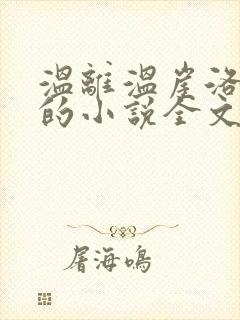 温離温崖洛
的小說全文
屠海鳴